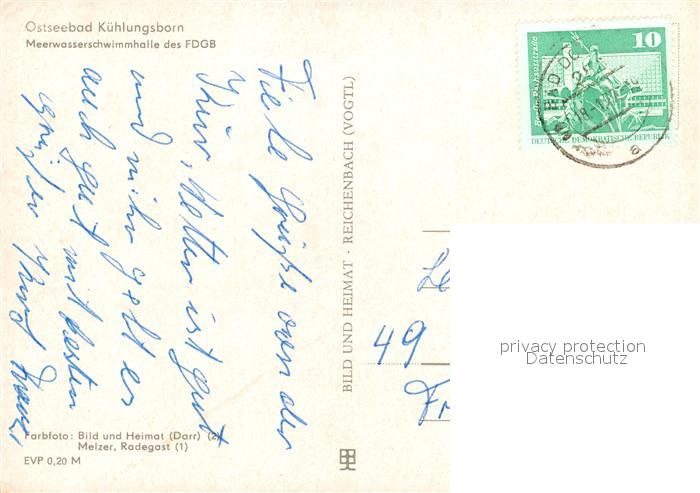 Ostseebad Kühlungsborn
Meerwasserschwimmhalle des FDGB
Viele Grüße von der
Kur, Wetter ist gut
und mir geht es
auch gut mit besten
Grüßen
Farbfoto: Bild und Heimat (Darr) (2)
Melzer, Radegast (1)
EVP 0,20 M
BILD UND HEIMAT · REICHENBACH (VOGTL)
10
Berlin, Rathausstraße
DEUTSCHE DEMOKRATISCHE REPUBLIK
BAD DO
a
49
privacy protection
Datenschutz